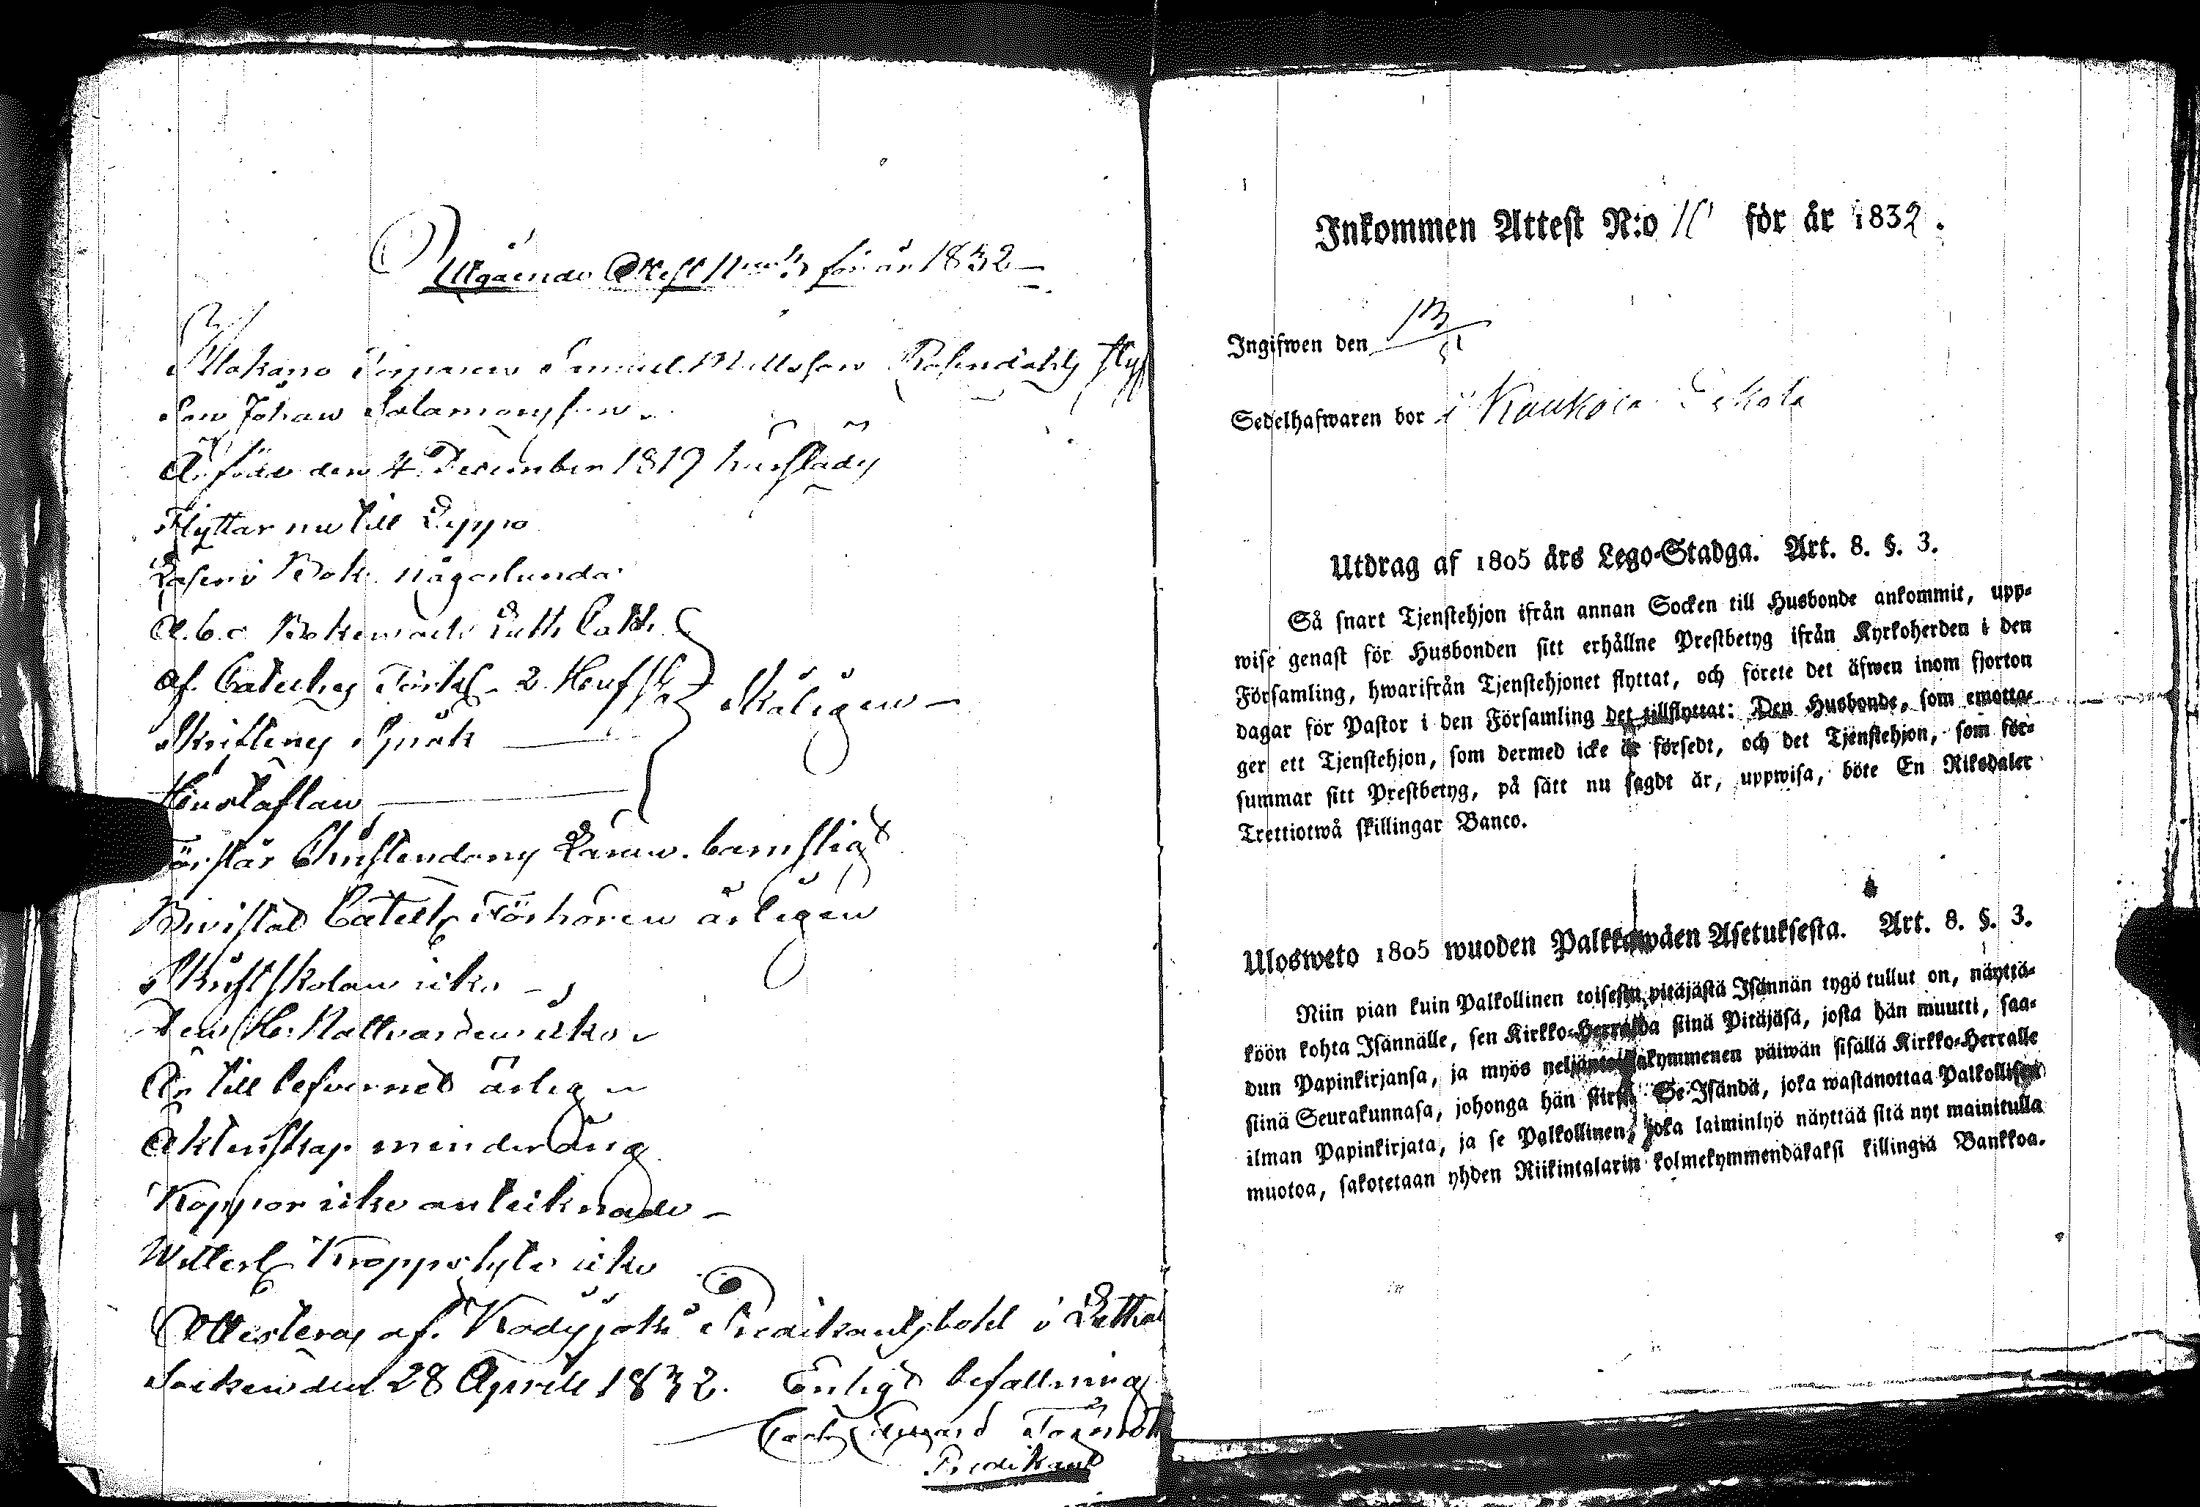 Utgående Attest Num 3 för år 1832
Torparen Samuel Rosendahls
Son Johan Salamonsson.
Är född den 4 December 1819
Flyttar nu till Loppo
Läser i Bok någorlunda
A.b.c Boken och Luth Cat:
af. Catechis Förkl. 2 Huf
Skriftens Språk
Hustaflan
skäligen
Förstår Christendoms Läran. barnsligt
Bivistat Catech Förhören årligen
Skriftskolan icke
Den H: Nattvarden icke
Är till lefvernet ärlig
Äktenskap minderårig
Koppor icke antecknade
Witterl. Kroppslyte icke
Attesteras af Predikantsbohl i
Socken den 28 Aprill 1832. Enligt befallning
Carl
Predikant
Inkommen Attest N:o för år 1832.
Ingifwen den 13/5
Sedelhafwaren bor i
Utdrag af 1805 års Lego-Stadga. Art. 8. §. 3.
Så snart Tjenstehjon ifrån annan Socken till Husbonde ankommit, upp-
wise genast för Husbonden sitt erhållne Prestbetyg ifrån Kyrkoherden i den
Församling, hwarifrån Tjenstehjonet flyttat, och förete det äfwen inom fjorton
dagar för Pastor i den Församling det tillflyttat: Den Husbonde, som emotta-
ger ett Tjenstehjon, som dermed icke är försedt, och det Tjenstehjon, som för-
summar sitt Prestbetyg, på sätt nu sagdt är, uppwisa, böte En Riksdaler
Trettiotwå skillingar Banco.
Ulosweto 1805 wuoden Palkkawäen Asetuksesta. Art. 8. §. 3.
Niin pian kuin Palkollinen toisesta pitäjästä Isännän tygö tullut on, näyttä-
köön kohta Isännälle, sen Kirkko-Herralda siinä Pitäjäsä, josta hän muutti, saa-
dun Papinkirjansa, ja myös neljäntoistakymmenen päiwän sisällä Kirkko-Herralle
siinä Seurakunnasa, johonga hän siirsi: Se Isändä, joka wastanottaa Palkollisen
ilman Papinkirjata, ja se Palkollinen, joka laiminlyö näyttää sitä nyt mainitulla
muotoa, sakotetaan yhden Riikintalarin kolmekymmendäkaksi killingiä Bankkoa.